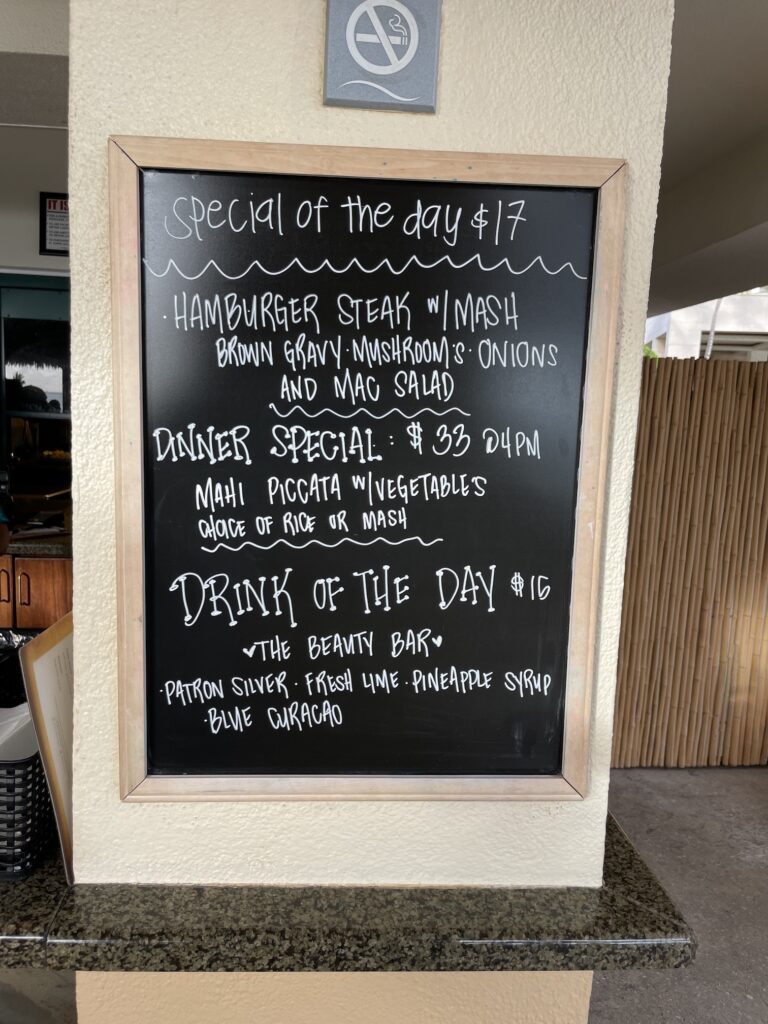 IT IS
Special of the day $17
· HAMBURGER STEAK W/MASH
BROWN GRAVY · MUSHROOM'S · ONIONS
AND MAC SALAD
DINNER SPECIAL : $33 @4PM
MAHI PICCATA W/VEGETABLES
CHOICE OF RICE OR MASH
DRINK OF THE DAY $16
♥THE BEAUTY BAR♥
· PATRON SILVER · FRESH LIME · PINEAPPLE SYRUP
· BLUE CURACAO